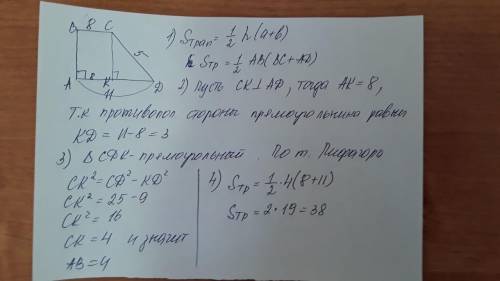 B 8 C
5
A 8 K D
11
1) Sтрап = 1/2 h(a+b)
Sтр = 1/2 AB(BC+AD)
2) Пусть CK⊥AD, тогда AK=8,
т.к противопол стороны прямоугольника равны
KD = 11-8=3
3) Δ CDK-прямоугольный. По т. Пифагора
CK² = CD² - KD²
CK² = 25-9
CK² = 16
CK = 4 и значит
AB = 4
4) Sтр = 1/2 · 4(8+11)
Sтр = 2·19 = 38